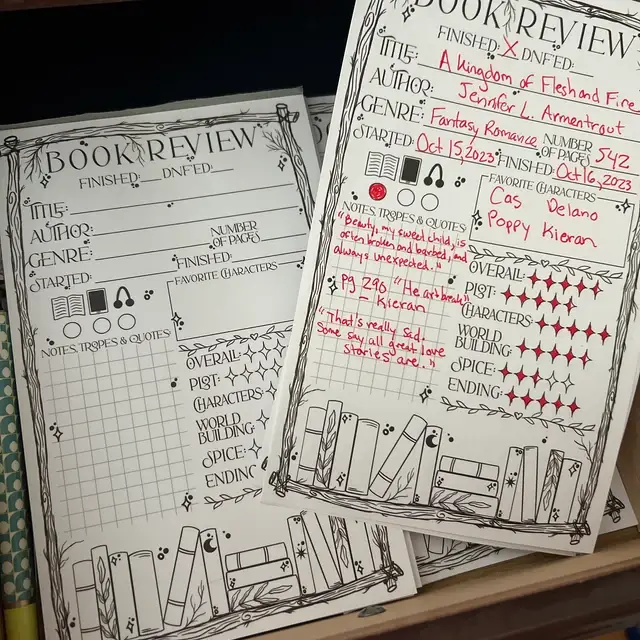 BOOK REVIEW
FINISHED: DNF'ED:
TITLE:
AUTHOR:
GENRE: NUMBER OF PAGES:
STARTED: FINISHED:
FAVORITE CHARACTERS
NOTES, TROPES & QUOTES
OVERALL:
PLOT:
CHARACTERS:
WORLD
BUILDING:
SPICE:
ENDING
BOOK REVIEW
FINISHED: X DNF'ED:
TITLE: A Kingdom of Flesh and Fire
AUTHOR: Jennifer L. Armentrout
GENRE: Fantasy Romance NUMBER OF PAGES: 542
STARTED: Oct 15, 2023 FINISHED: Oct 16, 2023
FAVORITE CHARACTERS
Cas Delano
Poppy Kieran
NOTES, TROPES & QUOTES
"Beauty, my sweet child, is
often broken and barbed, and
always unexpected."
Pg 290 "Heartbreak"
- Kieran
"That's really sad.
Some say all great love
stories are."
OVERALL:
PLOT:
CHARACTERS:
WORLD
BUILDING:
SPICE:
ENDING: